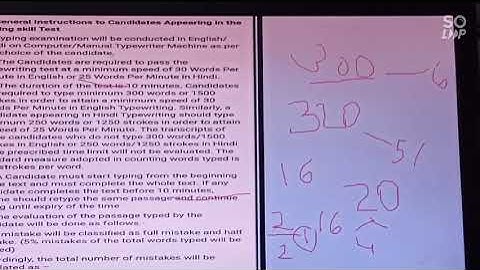 General Instructions to Candidates Appearing in the
Typing skill Test
Typing examination will be conducted in English/
Hindi on Computer/Manual Typewriter Machine as per
choice of the candidate.
The Candidates are required to pass the
typewriting test at a minimum speed of 30 Words Per
Minute in English or 25 Words Per Minute in Hindi.
The duration of the test is 10 minutes, Candidates
required to type minimum 300 words or 1500
strokes in order to attain a minimum speed of 30
Words Per Minute in English Typewriting. Similarly, a
candidate appearing in Hindi Typewriting should type
minimum 250 words or 1250 strokes in order to attain
speed of 25 Words Per Minute. The transcripts of
the candidates who do not type 300 words/1500
strokes in English or 250 words/1250 strokes in Hindi
prescribed time limit will not be evaluated. The
standard measure adopted in counting words typed is
strokes per word.
A Candidate must start typing from the beginning
the text and must complete the whole text. If any
candidate completes the text before 10 minutes,
should retype the same passage and continue
typing until expiry of the time
The evaluation of the passage typed by the
candidate will be done as follows
mistake will be classified as full mistake and half
mistake. (5% mistakes of the total words typed will be
Accordingly, the total number of mistakes will be
calculated as –
SO
LMP
300
6
320
5%
16
20
2
2
1
16
4